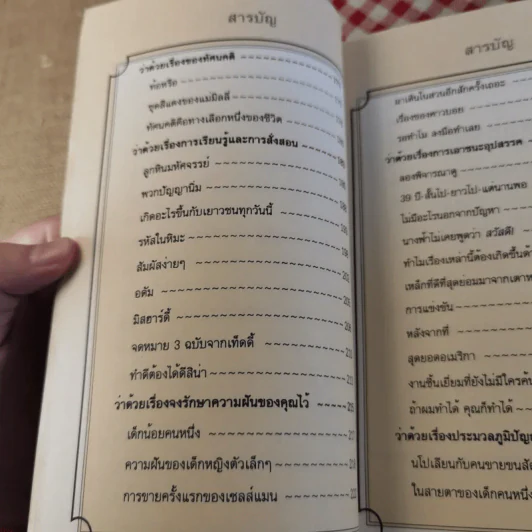 สารบัญ
ว่าด้วยเรื่องของทัศนคติ
ท้อหรือ
ชุดสีแดงของแม่มิลลี่
ทัศนคติคือทางเลือกหนึ่งของชีวิต
ว่าด้วยเรื่องการเรียนรู้และการสั่งสอน
ลูกหินมหัศจรรย์
พวกปัญญานิ่ม
เกิดอะไรขึ้นกับเยาวชนทุกวันนี้
รหัสในหิมะ
สัมผัสง่ายๆ
อดัม
มิสฮาร์ดี้
จดหมาย 3 ฉบับจากเท็ดดี้
ทำดีต้องได้ดีสิน่า
ว่าด้วยเรื่องจงรักษาความฝันของคุณไว้
เด็กน้อยคนหนึ่ง
ความฝันของเด็กหญิงตัวเล็กๆ
การขายครั้งแรกของเซลส์แมน
สารบัญ
มาเดินในสวนอีกสักครั้งเถอะ
เรื่องของคาวบอย
รอทำไม ลงมือทำเลย
ว่าด้วยเรื่องการเอาชนะอุปสรรค
ลองพิจารณาดู
39 ปี-สั้นไป-ยาวไป-แค่นานพอ
ไม่มีอะไรนอกจากปัญหา
นางฟ้าไม่เคยพูดว่า สวัสดี!
ทำไมเรื่องเหล่านี้ต้องเกิดขึ้น
เหล็กที่ดีที่สุดย่อมมาจากเตา
การแข่งขัน
หลังจากที่
สุดยอดอเมริกา
งานชิ้นเยี่ยมที่ยังไม่มีใคร
ถ้าผมทำได้ คุณก็ทำได้
ว่าด้วยเรื่องประมวลภูมิปัญ
นโปเลียนกับคนขายขนสั
ในสายตาของเด็กคนหนึ่ง